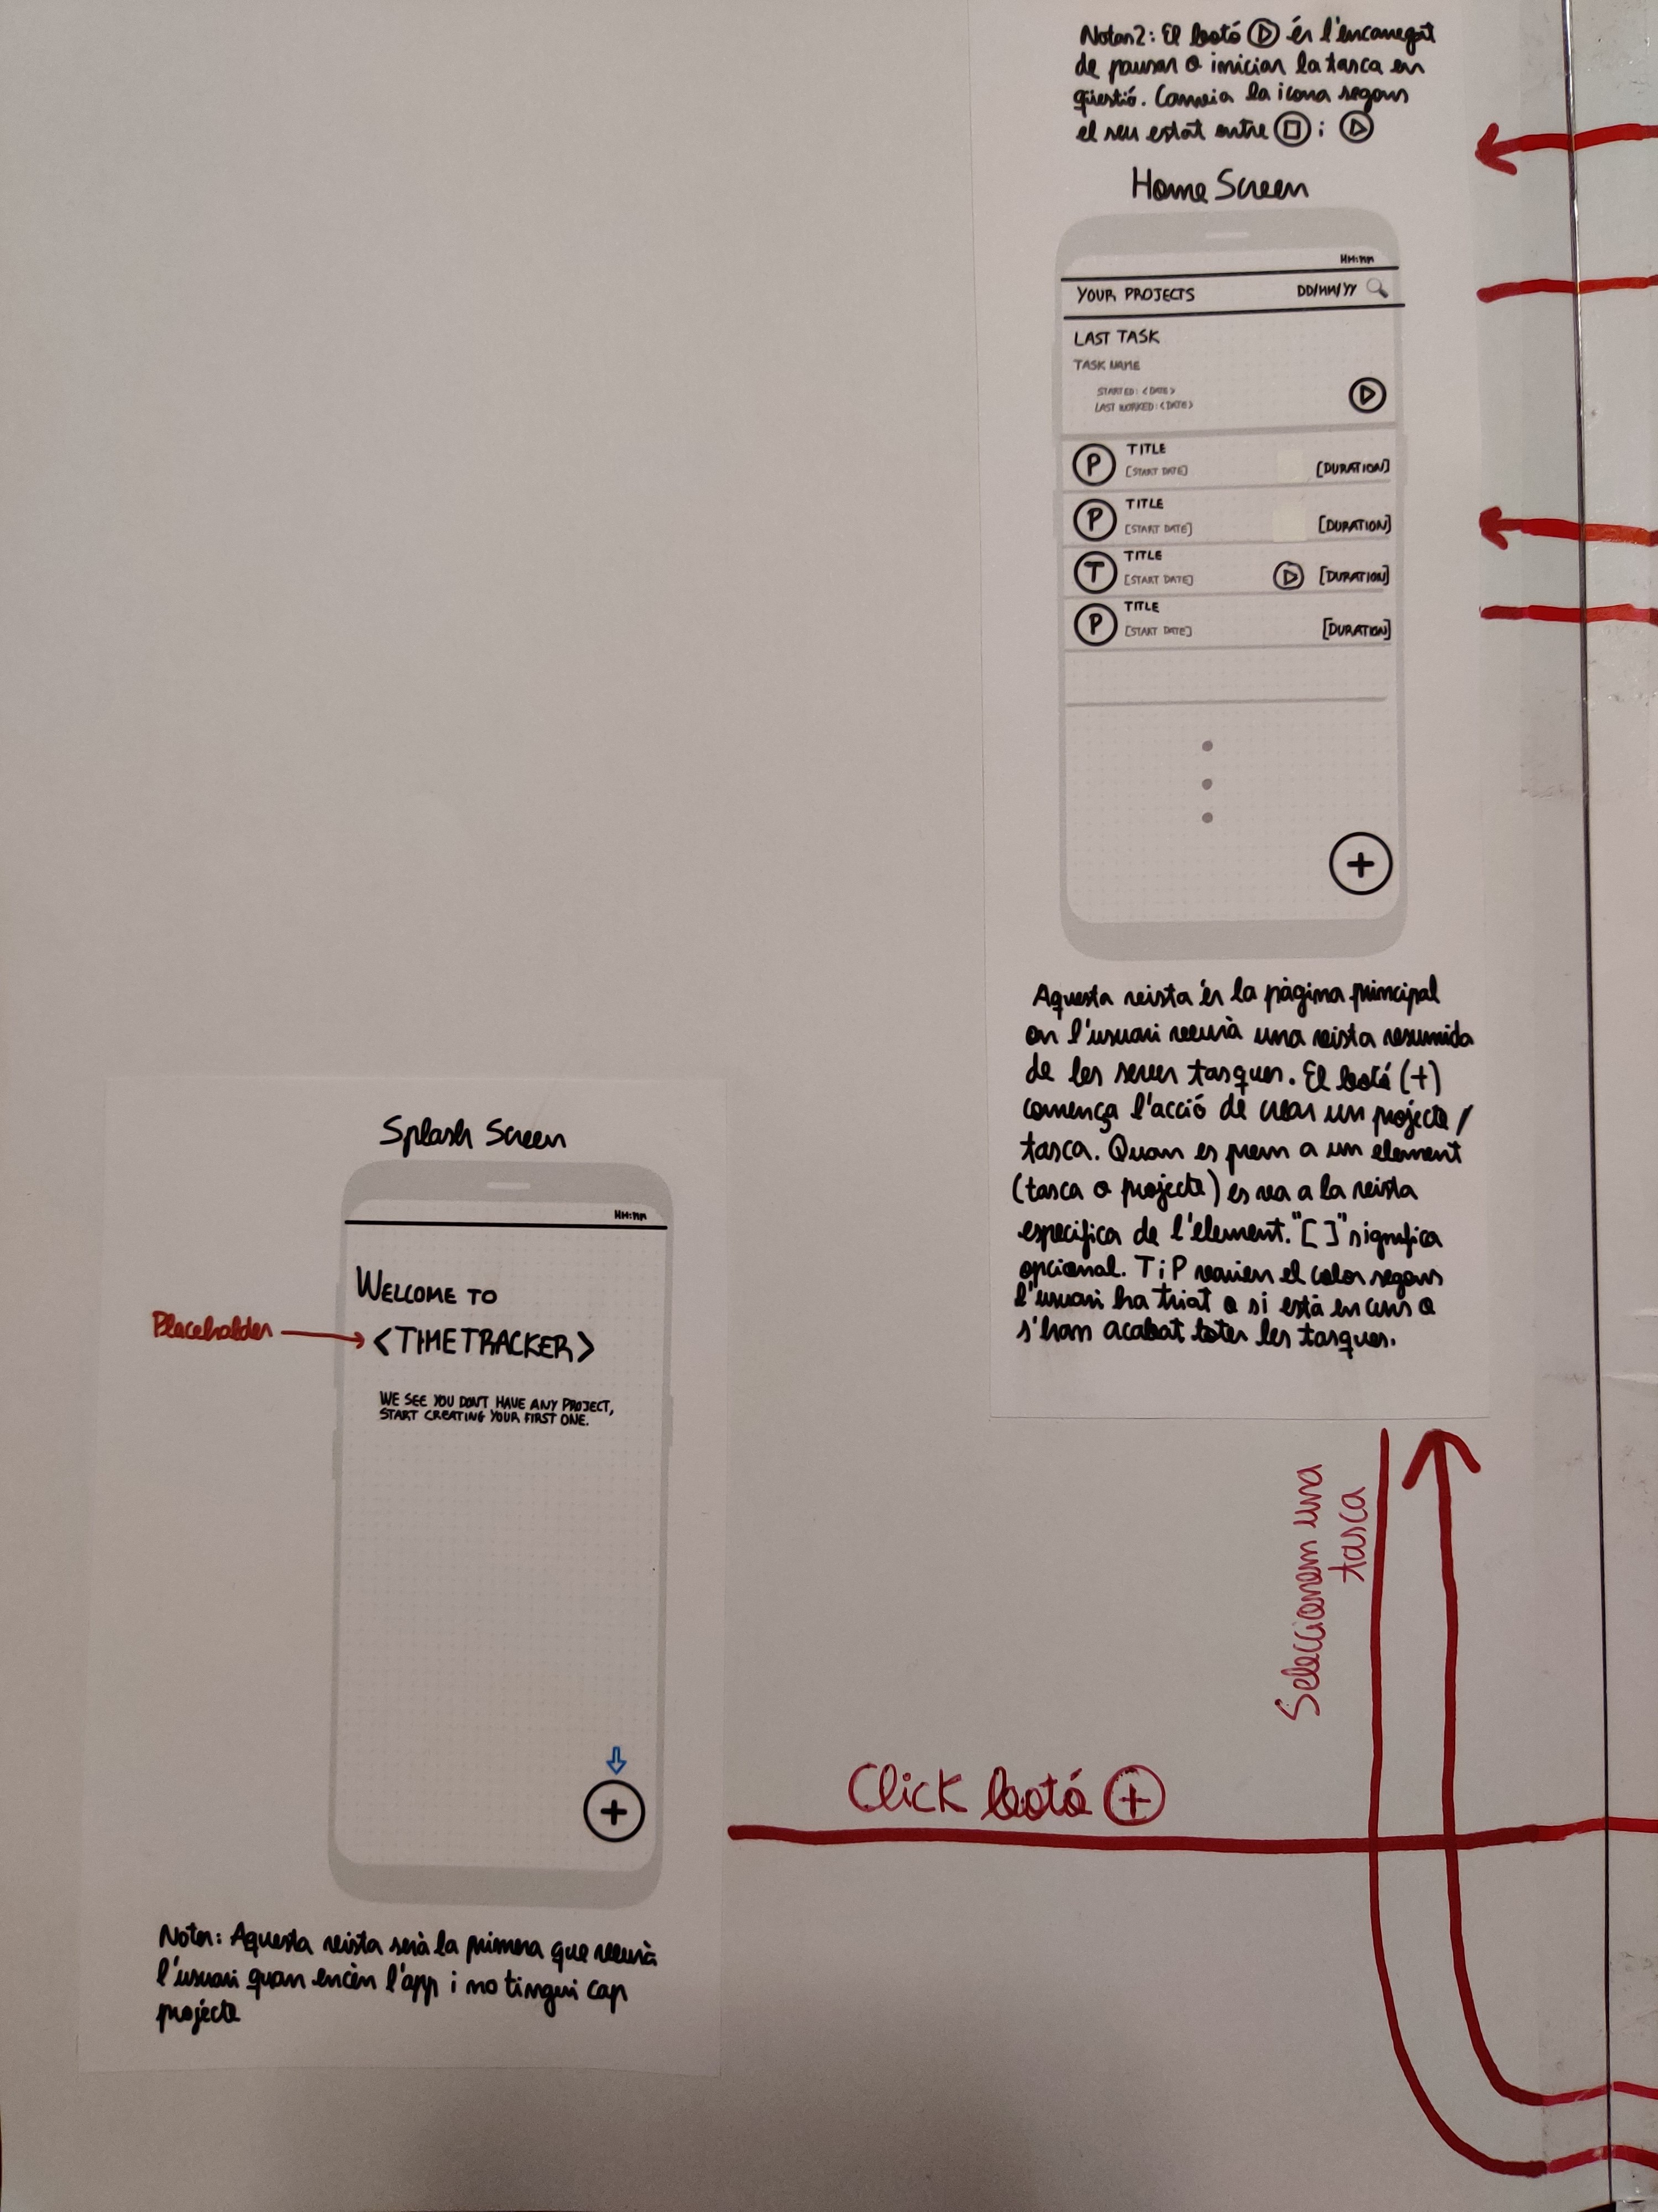 Notas2: El botó ▷ és l'encarregat
de pausar o iniciar la tasca en
qüestió. Canvia la icona segons
el seu estat entre □ i ▷
Home Screen
HH:MM
YOUR PROJECTS DD/MM/YY
LAST TASK
TASK NAME
STARTED: <DATE>
LAST WORKED: <DATE>
P TITLE
[START DATE] [DURATION]
P TITLE
[START DATE] [DURATION]
T TITLE
[START DATE] ▷ [DURATION]
P TITLE
[START DATE] [DURATION]
+
Aquesta vista és la pàgina principal
on l'usuari veurà una vista resumida
de les seves tasques. El botó (+)
comença l'acció de crear un projecte/
tasca. Quan es prem a un element
(tasca o projecte) es va a la vista
específica de l'element. "[ ]" significa
opcional. T i P varien el color segons
l'usuari ha triat o si està en curs o
s'han acabat totes les tasques.
Splash Screen
HH:MM
WELCOME TO
Placeholder
<TIMETRACKER>
WE SEE YOU DON'T HAVE ANY PROJECT,
START CREATING YOUR FIRST ONE.
+
Notes: Aquesta vista serà la primera que veurà
l'usuari quan encén l'app i no tingui cap
projécte
Seleccionem una
tasca
Click botó +